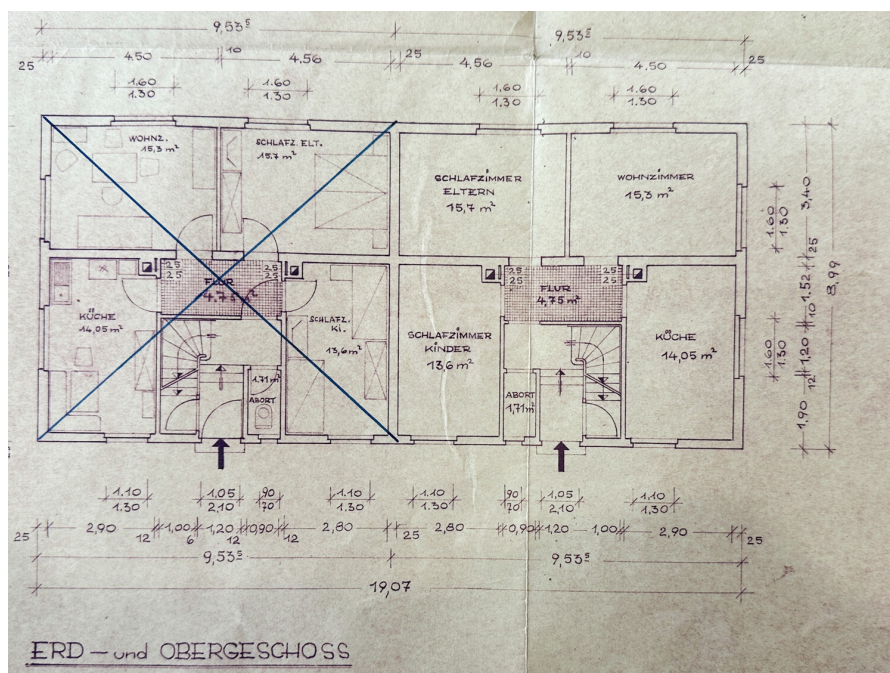 9,53⁵
9,53⁵
25
4.50
10
4.56
25
4,56
10
4.50
25
1.60
1.30
1.60
1.30
1.60
1.30
1.60
1.30
WOHNZ.
15,3 m²
SCHLAFZ. ELT.
15.7 m²
SCHLAFZIMMER
ELTERN
15,7 m²
WOHNZIMMER
15,3 m²
1.60
1.30
3,40
25
8,99
25
25
FLUR
25
25
25
25
FLUR
4,75 m²
25
25
1.52
10
KÜCHE
14,05 m²
SCHLAFZ.
KI.
13,6 m²
SCHLAFZIMMER
KINDER
13,6 m²
KÜCHE
14,05 m²
1.60
1.30
1,20
12
1,90
1.71 m²
ABORT
ABORT
1,71 m²
1.10
1.30
1.05
2,10
90
70
1.10
1.30
1.10
1.30
90
70
1,05
2.10
1.10
1.30
25
2,90
12
1,00
6
1,20
12
0,90
12
2.80
25
2.80
0,90
1.20
1.00
2.90
25
9,53⁵
9,53⁵
19,07
ERD – und OBERGESCHOSS